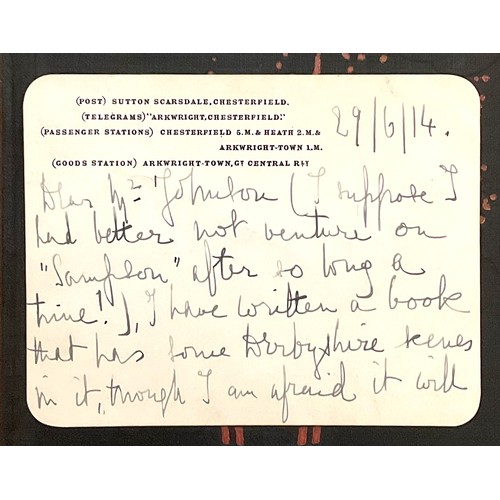 (POST) SUTTON SCARSDALE, CHESTERFIELD.
(TELEGRAMS) "ARKWRIGHT, CHESTERFIELD."
(PASSENGER STATIONS) CHESTERFIELD 5.M. & HEATH 2.M. &
ARKWRIGHT-TOWN 1.M.
(GOODS STATION) ARKWRIGHT-TOWN, GT CENTRAL RLY
29/6/14.
Dear Mr Johnson (I suppose I
had better not venture on
"Sampson" after so long a
time!), I have written a book
that has some Derbyshire scenes
in it, though I am afraid it will